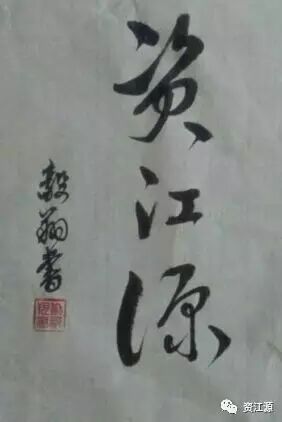 资江源
毅翔書
资江源